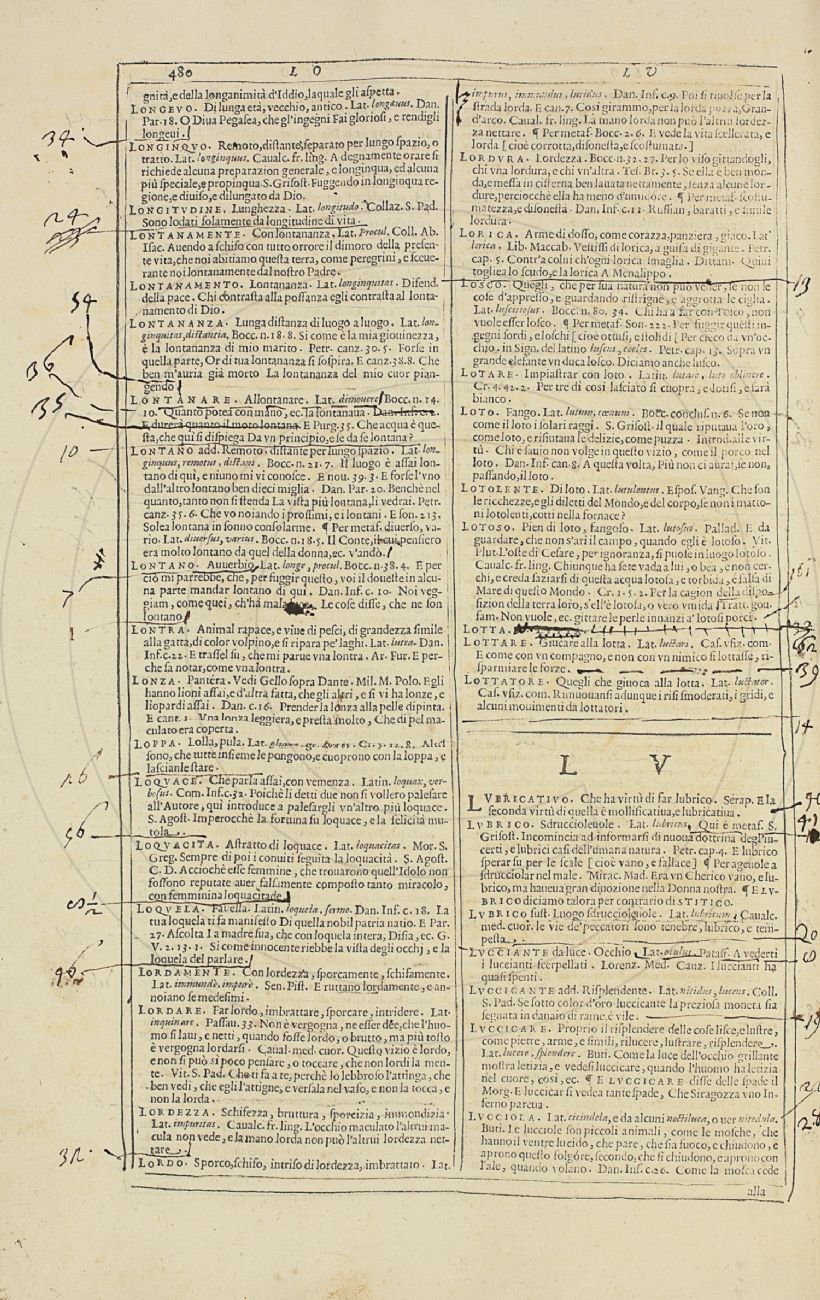 480 L O
L V
gnità, e della longanimità d'Iddio, la quale gli aspetta.
LONGEVO. Di lunga età, vecchio, antico. Lat. longævus. Dan.
Par. 18. O Diua Pegasea, che gl'ingegni Fai gloriosi, e rendigli
longeui.
LONGINQVO. Remoto, distante, separato per lungo spazio, o
tratto. Lat. longinquus. Caualc. fr. ling. A degnamente orare si
richiede alcuna preparazion generale, e longinqua, ed alcuna
più speciale, e propinqua. S. Grisost. Fuggendo in longinqua re-
gione, e diuiso, e dilungato da Dio.
LONGITVDINE. Lunghezza. Lat. longitudo. Collaz. S. Pad.
Sono lodati solamente da longitudine di vita.
LONTANAMENTE. Con lontananza. Lat. Procul. Coll. Ab.
Isac. Auendo a schifo con tutto orrore il dimoro della presen-
te vita, che noi abitiamo questa terra, come peregrini, e sceue-
rante noi lontanamente dal nostro Padre.
LONTANAMENTO. Lontananza. Lat. longinquitas. Difend.
della pace. Chi contrasta alla possanza egli contrasta al lonta-
namento di Dio.
LONTANANZA. Lunga distanza di luogo a luogo. Lat. lon-
ginquitas, distantia. Bocc. n. 18. 8. Si come è la mia giouinezza,
e la lontananza di mio marito. Petr. canz. 30. 5. Forse in
quella parte, Or di tua lontananza si sospira. E canz. 38. 8. Che
ben m'auria già morto La lontananza del mio cuor pian-
gendo.
LONTANARE. Allontanare. Lat. dimouere. Bocc. n. 14.
10. Quanto potea con mano, ec. la lontanaua. Dan. Inf. c. 2.
E durerà quanto il moto lontana. E Purg. 35. Che acqua è que-
sta, che qui si dispiega Da vn principio, e se da se lontana?
LONTANO add. Remoto, distante per lungo spazio. Lat. lon-
ginquus, remotus, distans. Bocc. n. 21. 7. Il luogo è assai lon-
tano di qui, e niuno mi vi conosce. E nou. 39. 3. E forse l'vno
dall'altro lontano ben dieci miglia. Dan. Par. 20. Benchè nel
quanto, tanto non si stenda La vista più lontana, li vedrai. Petr.
canz. 35. 6. Che vo noiando i prossimi, e i lontani. E son. 213.
Solea lontana in sonno consolarme. ¶ Per metaf. diuerso, va-
rio. Lat. diuersus, varius. Bocc. n. 18. 5. Il Conte, il cui pensiero
era molto lontano da quel della donna, ec. v'andò.
LONTANO. Auuerbio. Lat. longe, procul. Bocc. n. 38. 4. E per
ciò mi parrebbe, che, per fuggir questo, voi il doueste in alcu-
na parte mandar lontano di qui. Dan. Inf. c. 10. Noi veg-
giam, come quei, ch'ha mala luce, Le cose disse, che ne son
lontano.
LONTRA. Animal rapace, e viue di pesci, di grandezza simile
alla gatta, di color volpino, e si ripara pe' laghi. Lat. lutra. Dan.
Inf. c. 22. E trassel sù, che mi parue vna lontra. Ar. Fur. E per-
che fa notar, come vna lontra.
LONZA. Pantera. Vedi Gello sopra Dante. Mil. M. Polo. Egli
hanno lioni assai, e d'altra fatta, che gli altri, e sì vi ha lonze, e
liopardi assai. Dan. c. 16. Prender la lonza alla pelle dipinta.
E cant. 1. Vna lonza leggiera, e presta molto, Che di pel ma-
culato era coperta.
LOPPA. Lolla, pula. Lat. Cr. 3. 12. 8. Alcu
sono, che tutte insieme le pongono, e cuoprono con la loppa, e
lascianle stare.
LOQVACE. Che parla assai, con vemenza. Latin. loquax, ver-
bosus. Com. Inf. c. 32. Poichè li detti due non si vollero palesare
all'Autore, qui introduce a palesargli vn'altro più loquace.
S. Agost. Imperocchè la fortuna fu loquace, e la felicità mu-
tola.
LOQVACITA. Astratto di loquace. Lat. loquacitas. Mor. S.
Greg. Sempre di poi i conuiti seguita la loquacità. S. Agost.
C. D. Acciochè esse femmine, che trouarono quell'Idolo non
fossono reputate auer falsamente composto tanto miracolo,
con femminina loquacitade.
LOQVELA. Fauella. Latin. loquela, sermo. Dan. Inf. c. 18. La
tua loquela ti fa manifesto Di quella nobil patria natio. E Par.
27. Ascolta La madre sua, che con loquela intera, Disia, ec. G.
V. 2. 13. 1. Si come innocente riebbe la vista degli occhj, e la
loquela del parlare.
LORDAMENTE. Con lordezza, sporcamente, schifamente.
Lat. immundè, impurè. Sen. Pist. E ruttano lordamente, e an-
noiano se medesimi.
LORDARE. Far lordo, imbrattare, sporcare, intridere. Lat.
inquinare. Passau. 33. Non è vergogna, ne esser dee, che l'huo-
mo si laui, e netti, quando fosse lordo, o brutto, ma più tosto
è vergogna lordarsi. Caual. med. cuor. Questo vizio è lordo,
e non si può si poco pensare, o toccare, che non lordi la men-
te. Vit. S. Pad. Che ti fa a te, perchè lo lebbroso l'attinga, che
ben vedi, che egli l'attigne, e versala nel vaso, e non la tocca, e
non la lorda.
LORDEZZA. Schifezza, bruttura, sporcizia, immondizia.
Lat. impuritas. Caualc. fr. ling. L'occhio maculato l'altrui ma-
cula non vede, e la mano lorda non può l'altrui lordezza net-
tare.
LORDO. Sporco, schifo, intriso di lordezza, imbrattato. Lat.
impurus, immundus, luridus. Dan. Inf. c. 9. Poi si riuolse per la
strada lorda. E can. 7. Così girammo, per la lorda pozza, Gran-
d'arco. Caual. fr. ling. La mano lorda non può l'altrui lordez-
za nettare. ¶ Per metaf. Bocc. 2. 6. E vede la vita scellerata, e
lorda [cioè corrotta, disonesta, e scostumata.]
LORDVRA. Lordezza. Bocc. n. 32. 27. Per lo viso gittandogli,
chi vna lordura, e chi vn'altra. Tes. Br. 3. 5. Se ella è ben mon-
da, e messa in cisterna ben lauata nettamente, senza alcune lor-
dure, perciocchè ella ha meno d'umidore. ¶ Per metaf. scostu-
matezza, e disonestà. Dan. Inf. c. 11. Ruffian, baratti, e simile
lordura.
LORICA. Arme di dosso, come corazza, panziera, giaco. Lat.
lorica. Lib. Maccab. Vestissi di lorica, a guisa di gigante. Petr.
cap. 5. Contr'a colui ch'ogni lorica smaglia. Dittam. Quiui
toglieа lo scudo, e la lorica A Menalippo.
LOSCO. Quegli, che per sua natura non può veder, se non le
cose d'appresso, e guardando ristrigne, e aggrotta le ciglia.
Lat. lusciosus. Bocc. n. 80. 34. Chi ha a far con Tosco, non
vuole esser losco. ¶ Per metaf. Son. 222. Per fuggir questi in-
gegni sordi, e loschi [cioè ottusi, e stolidi] Per cieco da vn'oc-
chio, in Sign. del latino luscus, cocles. Petr. cap. 13. Sopra vn
grande elefante vn duca losco. Diciamo anche lusco.
LOTARE. Impiastrar con loto. Latin. lutare, luto oblinere.
Cr. 4. 42. 2. Per tre di così lasciato si cuopra, e lotisi, e sarà
bianco.
LOTO. Fango. Lat. lutum, cœnum. Bocc. conclus. n. 6. Se non
come il loto i solari raggi. S. Grisost. il quale riputaua l'oro,
come loto, e rifiutaua le delizie, come puzza. Introd. alle vir-
tù. Chi è sauio non volge in questo vizio, come il porco nel
loto. Dan. Inf. can. 8. A questa volta, Più non ci aurai, se non,
passando, il loto.
LOTOLENTE. Di loto. Lat. lutulentus. Espos. Vang. Che son
le ricchezze, e gli diletti del Mondo, e del corpo, se non i matto-
ni lotolenti, cotti nella fornace?
LOTOSO. Pien di loto, fangoso. Lat. lutosus. Pallad. E da
guardare, che non s'ari il campo, quando egli è lotoso. Vit.
Plut. L'oste di Cesare, per ignoranza, si puose in luogo lotoso.
Caualc. fr. ling. Chiunque ha sete vada a lui, o bea, e non cer-
chi, e creda saziarsi di questa acqua lotosa, e torbida, e salsa di
Mare di questo Mondo. Cr. 1. 5. 2. Per la cagion della dispo-
sizion della terra loro, s'ell'è lotosa, o vero vmida. Tratt. gou.
fam. Non vuole, ec. gittare le perle innanzi a' lotosi porci.
LOTTA.
LOTTARE. Giucare alla lotta. Lat. luctari. Cas. vfiz. com.
E come con vn compagno, e non con vn nimico si lottasse, ri-
sparmiare le forze.
LOTTATORE. Quegli che giuoca alla lotta. Lat. luctator.
Cas. vfiz. com. Rimuouansi adunque i risi smoderati, i gridi, e
alcuni mouimenti da lottatori.
L V
LVBRICATIVO. Che ha virtù di far lubrico. Serap. E la
seconda virtù di quella è mollificatiua, e lubricatiua.
LVBRICO. Sdruccioleuole. Lat. lubricus. Qui è metaf. S.
Grisost. Incomincia ad informarsi di nuoua dottrina degl'in-
certi, e lubrici casi dell'umana natura. Petr. cap. 4. E lubrico
sperar su per le scale [cioè vano, e fallace] ¶ Per ageuole a
sdrucciolar nel male. Mirac. Mad. Era vn Cherico vano, e lu-
brico, ma haueua gran diuozione nella Donna nostra. ¶ E LV-
BRICO diciamo talora per contrario di STITICO.
LVBRICO sust. Luogo sdruccioleuole. Lat. lubricum. Caualc.
med. cuor. le vie de' peccatori sono tenebre, lubrico, e tem-
pesta.
LVCCIANTE da luce. Occhio. Lat. oculus. Pataff. A vederti
i luccianti scerpellati. Lorenz. Med. Canz. I luccianti ha
quasi spenti.
LVCCICANTE add. Risplendente. Lat. nitidus, lucens. Coll.
S. Pad. Se sotto color d'oro luccicante la preziosa moneta sia
segnata in danaio di rame. è vile.
LVCCICARE. Proprio il risplendere delle cose lisce, e lustre,
come pietre, arme, e simili, rilucere, lustrare, risplendere.
Lat. lucere, splendere. Buti. Come la luce dell'occhio grillante
mostra letizia, e vedesi luccicare, quando l'huomo ha letizia
nel cuore, così, ec. ¶ E LVCCICARE disse delle spade il
Morg. E luccicar si vedea tante spade, Che Siragozza vno In-
ferno parea.
LVCCIOLA. Lat. cicindela, e da alcuni noctiluca, o ver nitedula.
Buti. Le lucciole son piccoli animali, come le mosche, che
hanno il ventre lucido, che pare, che sia fuoco, e chiudono, e
aprono questo folgóre, secondo, che si chiudono, e aprono con
l'ale, quando volano. Dan. Inf. c. 26. Come la mosca cede
alla
34
24
34
36
35
10
7
1
16
56
92
32
13
39
14
20
19
28